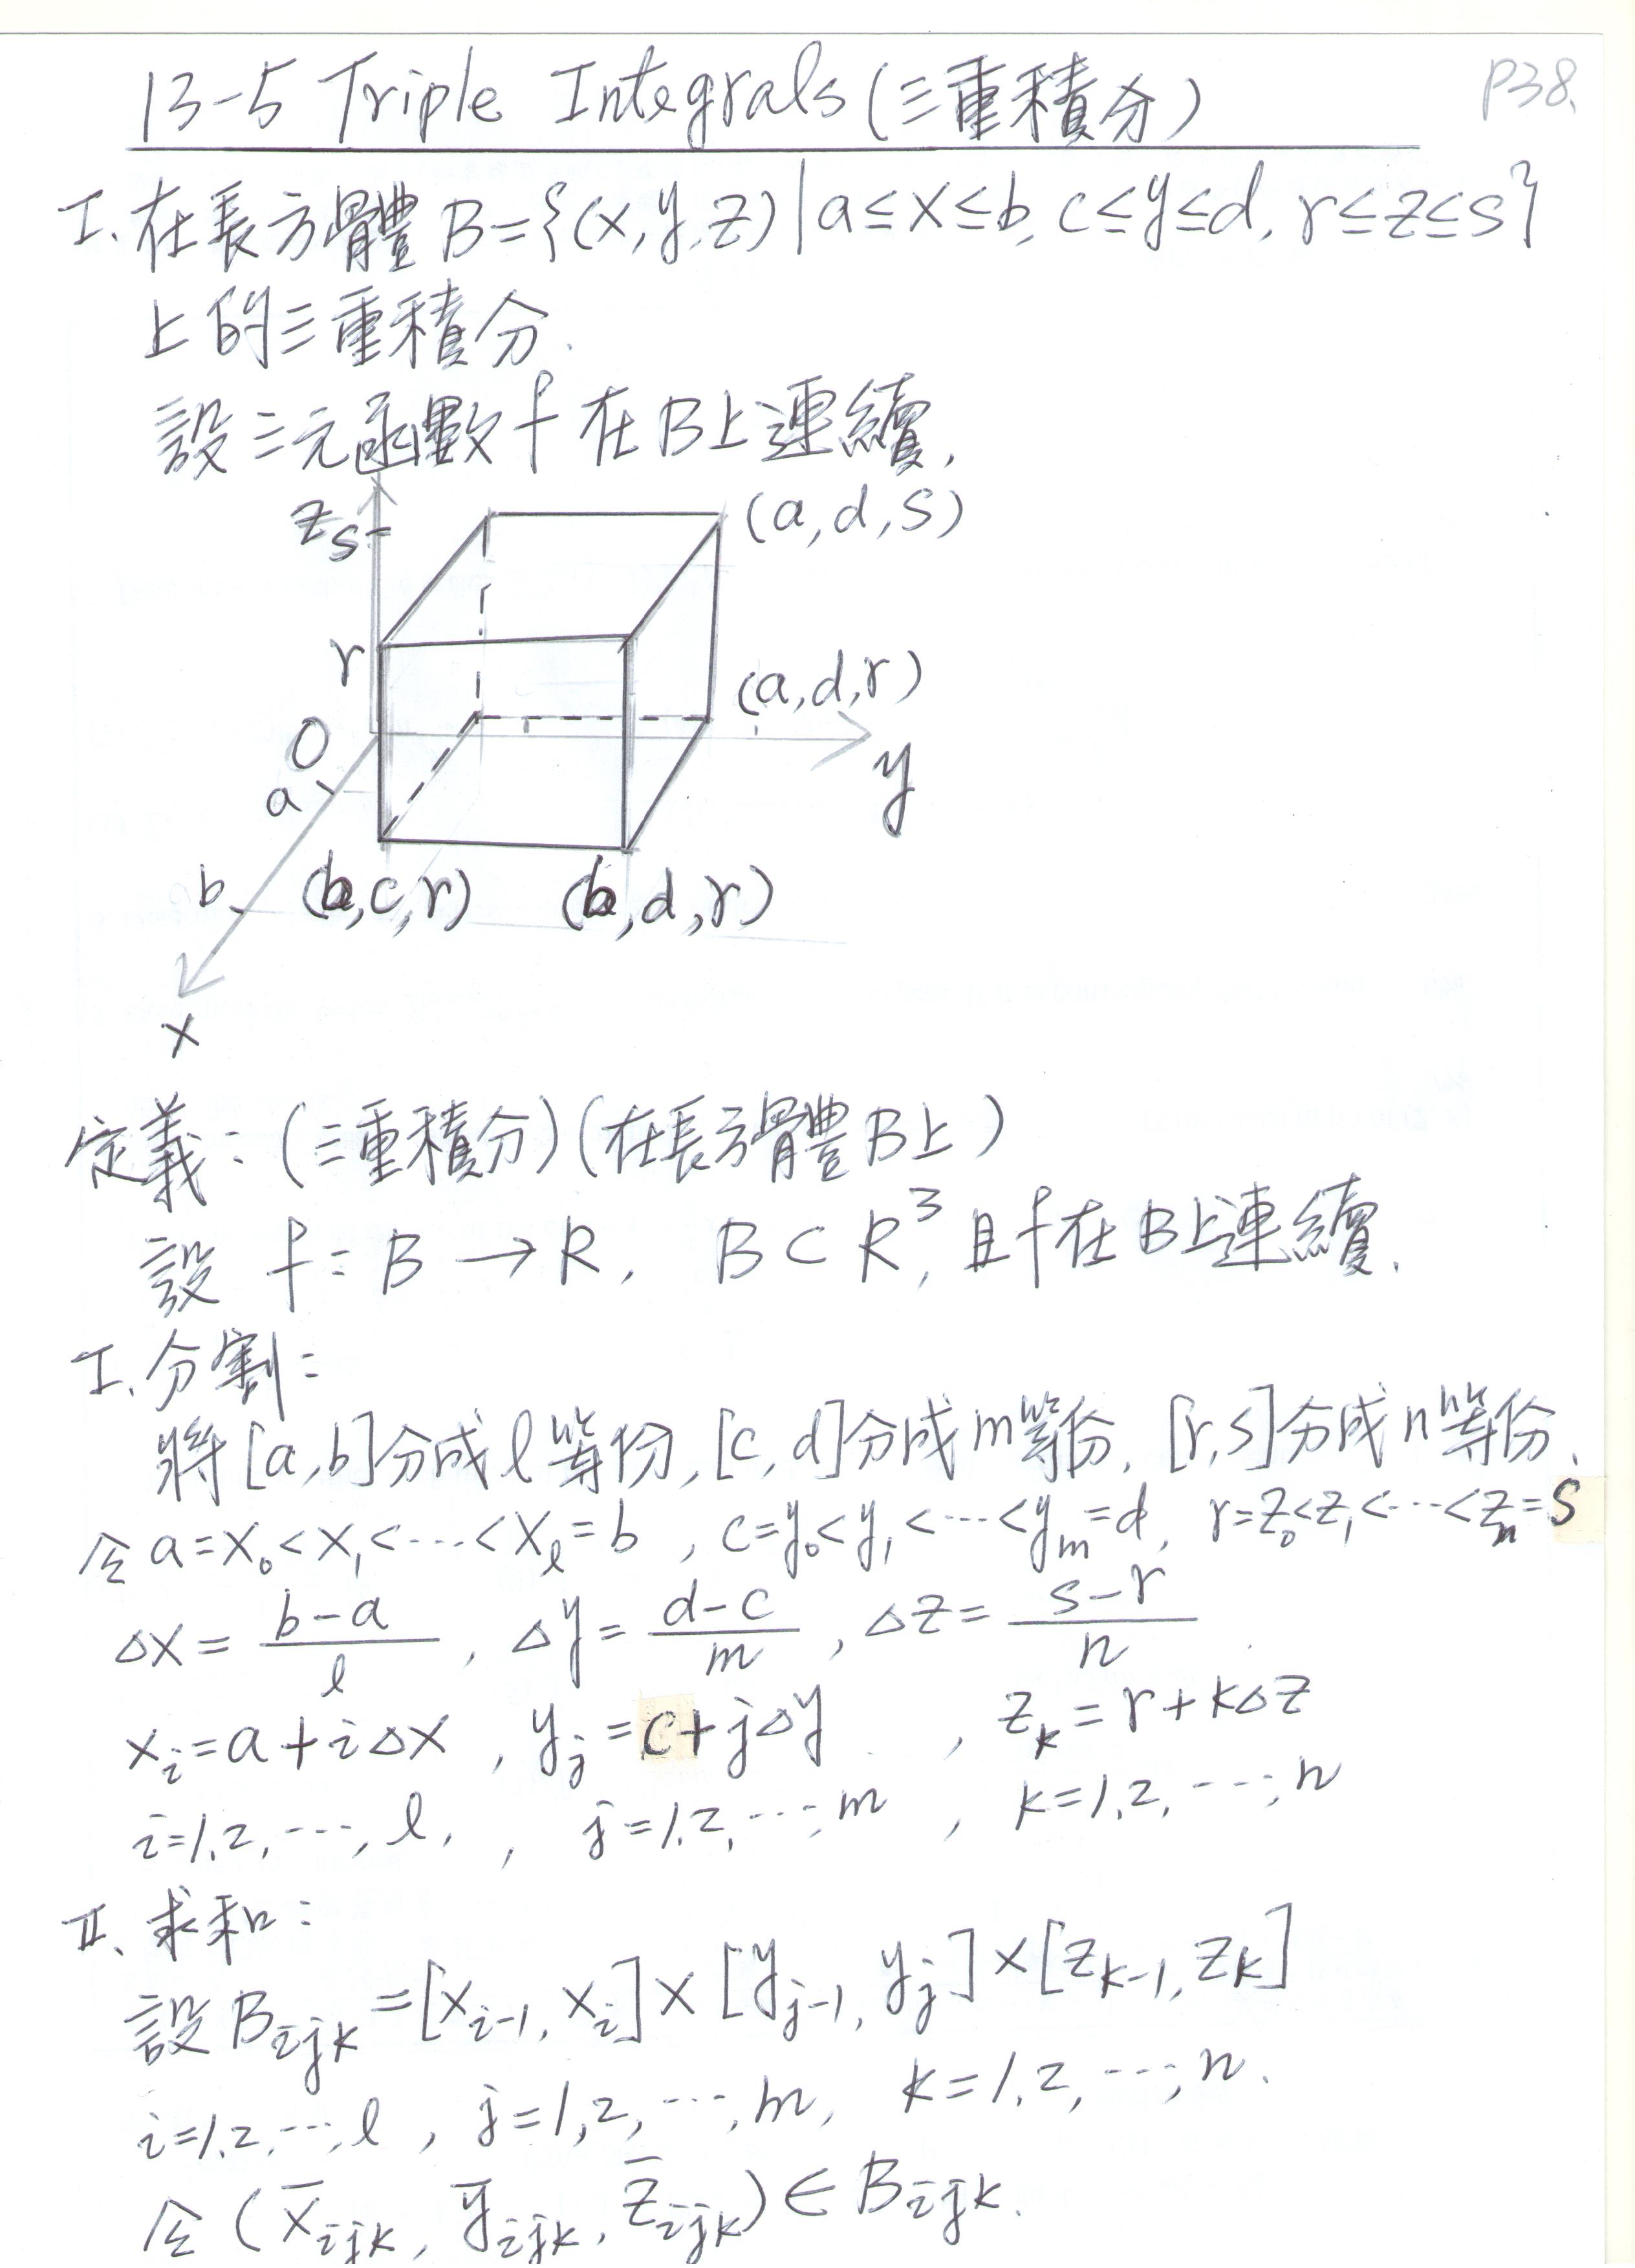 13-5 Triple Integrals (三重積分)
P38.
I. 在長方體 B={(x,y,z)|a≤x≤b, c≤y≤d, r≤z≤s}
上的三重積分.
設三元函數 f 在B上連續.
z
s
(a,d,s)
r
(a,d,r)
O
y
a
b
(b,c,r) (b,d,r)
x
定義: (三重積分)(在長方體B上)
設 f: B → R, B ⊂ R³, 且f在B上連續.
I. 分割:
將[a,b]分成ℓ等份, [c,d]分成m等份, [r,s]分成n等份.
令 a=x₀<x₁<⋯<x_ℓ=b , c=y₀<y₁<⋯<y_m=d, r=z₀<z₁<⋯<z_n=s
△x = (b-a)/ℓ , △y = (d-c)/m , △z = (s-r)/n
x_i=a+i△x , y_j=c+j△y , z_k=r+k△z
i=1,2,⋯,ℓ, , j=1,2,⋯,m , k=1,2,⋯,n
II. 求和:
設 B_ijk=[x_i-1, x_i]×[y_j-1, y_j]×[z_k-1, z_k]
i=1,2,⋯,ℓ , j=1,2,⋯,m, k=1,2,⋯,n.
令 (x̄_ijk, ȳ_ijk, z̄_ijk) ∈ B_ijk.